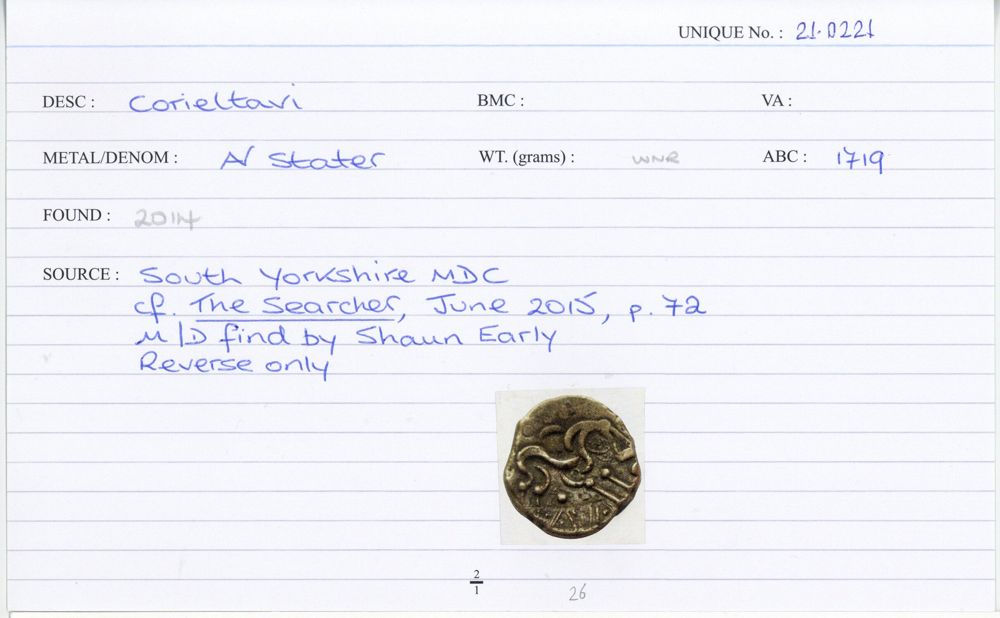 UNIQUE No. : 21.0221
DESC : Corieltavi BMC : VA :
METAL/DENOM : A/ Stater WT. (grams) : WNR ABC : 1719
FOUND : 2014
SOURCE : South Yorkshire MDC
cf. The Searcher, June 2015, p. 72
M/D find by Shaun Early
Reverse only
2
1
26